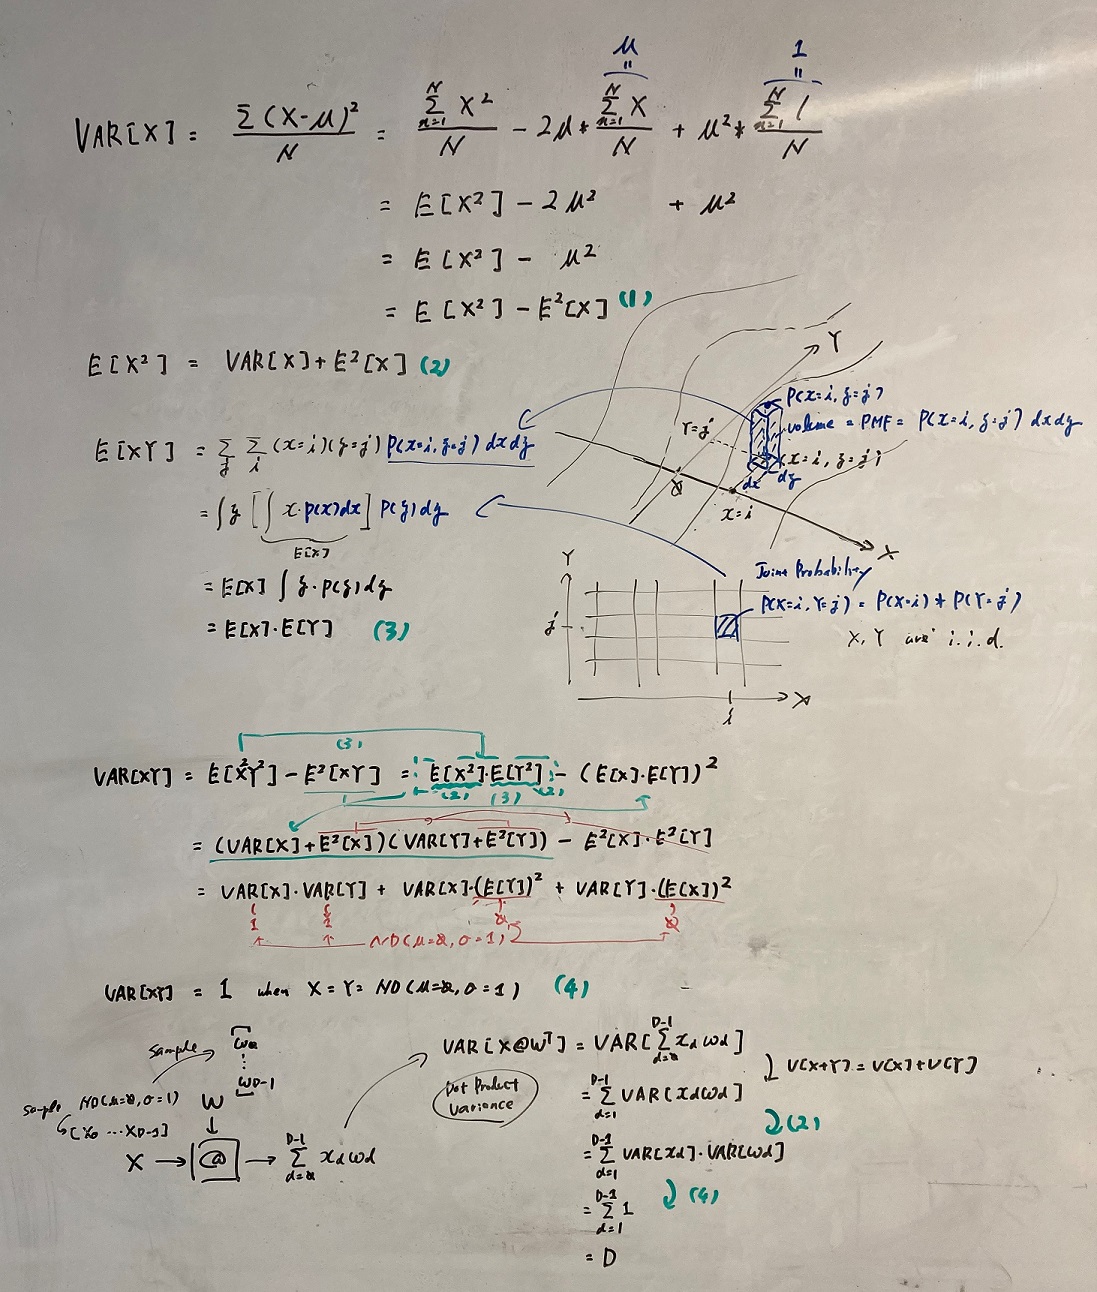 μ 1
VAR[X] = Σ(X-μ)² / N = Σ_{n=1}^{N} X² / N - 2μ * Σ_{n=1}^{N} X / N + μ² * Σ_{n=1}^{N} 1 / N
= E[X²] - 2μ² + μ²
= E[X²] - μ²
= E[X²] - E²[X] (1)
E[X²] = VAR[X] + E²[X] (2)
E[XY] = Σ_y Σ_i (x=i)(y=j) P(x=i, y=j) dx dy
= ∫ y [ ∫ x·p(x)dx ] p(y)dy
E[X]
= E[X] ∫ y·p(y)dy
= E[X]·E[Y] (3)
Y
P(x=i, y=j)
volume = PMF = P(x=i, y=j) dxdy
Y=j
(x=i, y=j)
dx dy
0
x=i
X
Joint Probability
P(X=i, Y=j) = P(X=i) * P(Y=j)
X, Y are i.i.d.
Y
j
i
X
(3)
VAR[XY] = E[X²Y²] - E²[XY] = E[X²]·E[Y²] - (E[X]·E[Y])²
(2) (3) (2)
= (VAR[X]+E²[X])(VAR[Y]+E²[Y]) - E²[X]·E²[Y]
= VAR[X]·VAR[Y] + VAR[X]·(E[Y])² + VAR[Y]·(E[X])²
1 1 0 0
ND(μ=0, σ=1)
VAR[XY] = 1 when X = Y = ND(μ=0, σ=1) (4)
sample
W0
⋮
WD-1
sample ND(μ=0, σ=1)
[X0 ... XD-1]
W
X → @ → Σ_{d=0}^{D-1} xd wd
Dot Product
Variance
VAR[X@Wᵀ] = VAR[Σ_{d=0}^{D-1} xd wd]
V[X+Y] = V[X]+V[Y]
= Σ_{d=1}^{D-1} VAR[xd wd]
(2)
= Σ_{d=1}^{D-1} VAR[xd]·VAR[wd]
(4)
= Σ_{d=1}^{D-1} 1
= D